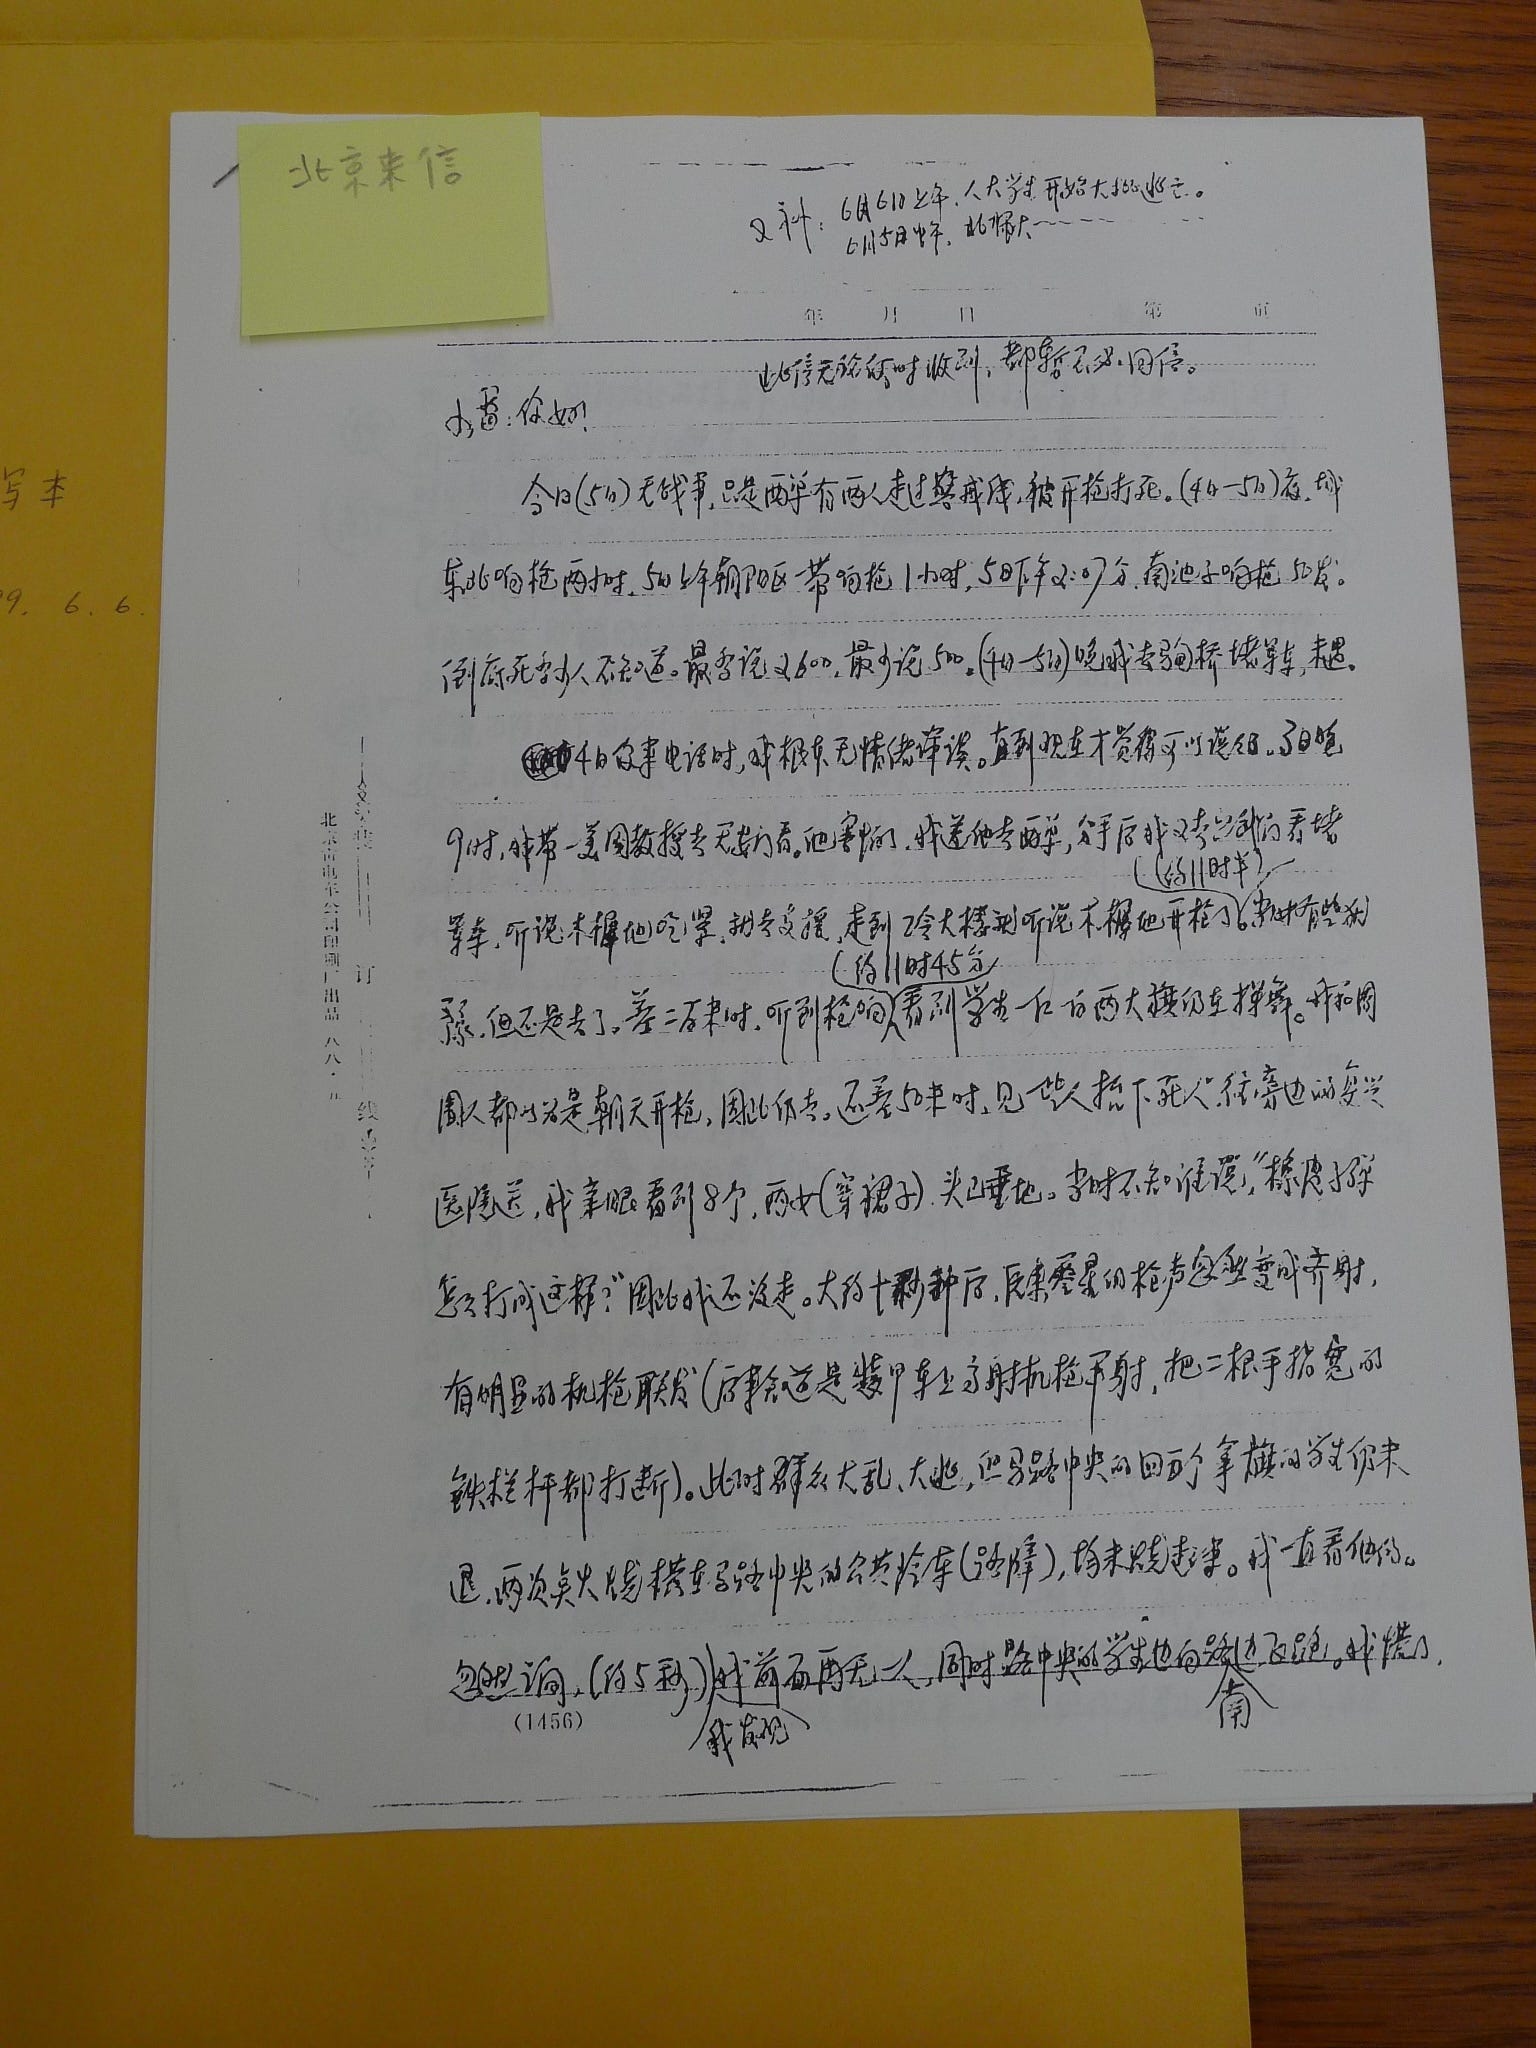 北京来信
又补：6月6日上午，人大学生开始大批逃亡。
6月5日中午，北师大-----
年 月 日 第 页
此信无论何时收到，都暂不必回信。
小雷：你好！
今日(5日)无战事，只是西单有两人走过警戒线，被开枪打死。(4日—5日)夜，城
东北响枪两小时，5日上午朝阳区一带响枪1小时，5日下午2:07分，南池子响枪50发。
到底死多少人不知道。最多说2600，最少说500。(4日—5日)晚我去 桥堵军车，未遇。
4日夜来电话时，我根本无情绪详谈。直到现在才觉得可以说说。3日晚
9时，我带一美国教授去天安门看。他害怕了，我送他去西单，分手后我又去 看堵
(约11时半)
军车，听说木樨地吃紧，就去支援，走到 大楼 听说木樨地开枪了。当时有些犹
(约11时45分)
豫，但还是去了。差二百来时，听到枪响，看到学生一红一白两大旗仍在挥舞。我和周
围人都以为是朝天开枪，因此仍去。还差50来时，见一些人抬下“死人”往旁边的复兴
医院送，我亲眼看到8个，两女(穿裙子)头已垂地。当时不知谁说，“橡皮子弹
怎么打成这样？”因此我还没走。大约十秒钟后，原来零星的枪声忽然变成齐射，
有明显的机枪联发(后来知道是装甲车上高射机枪平射，把二根手指宽的
铁栏杆都打断)。此时群众大乱、大逃，但马路中央的四五个拿旗的学生仍未
退，两次点火烧横在马路中央的公共汽车(路障)，均未烧起来。我一直看他们。
忽然之间，(约5秒)我前面再无一人，同时路中央的学生也向路边飞跑。我慌了，
我发现
南
(1456)
装 订 线
北京市电车公司印刷厂出品 八八·五
写本
99. 6. 6.